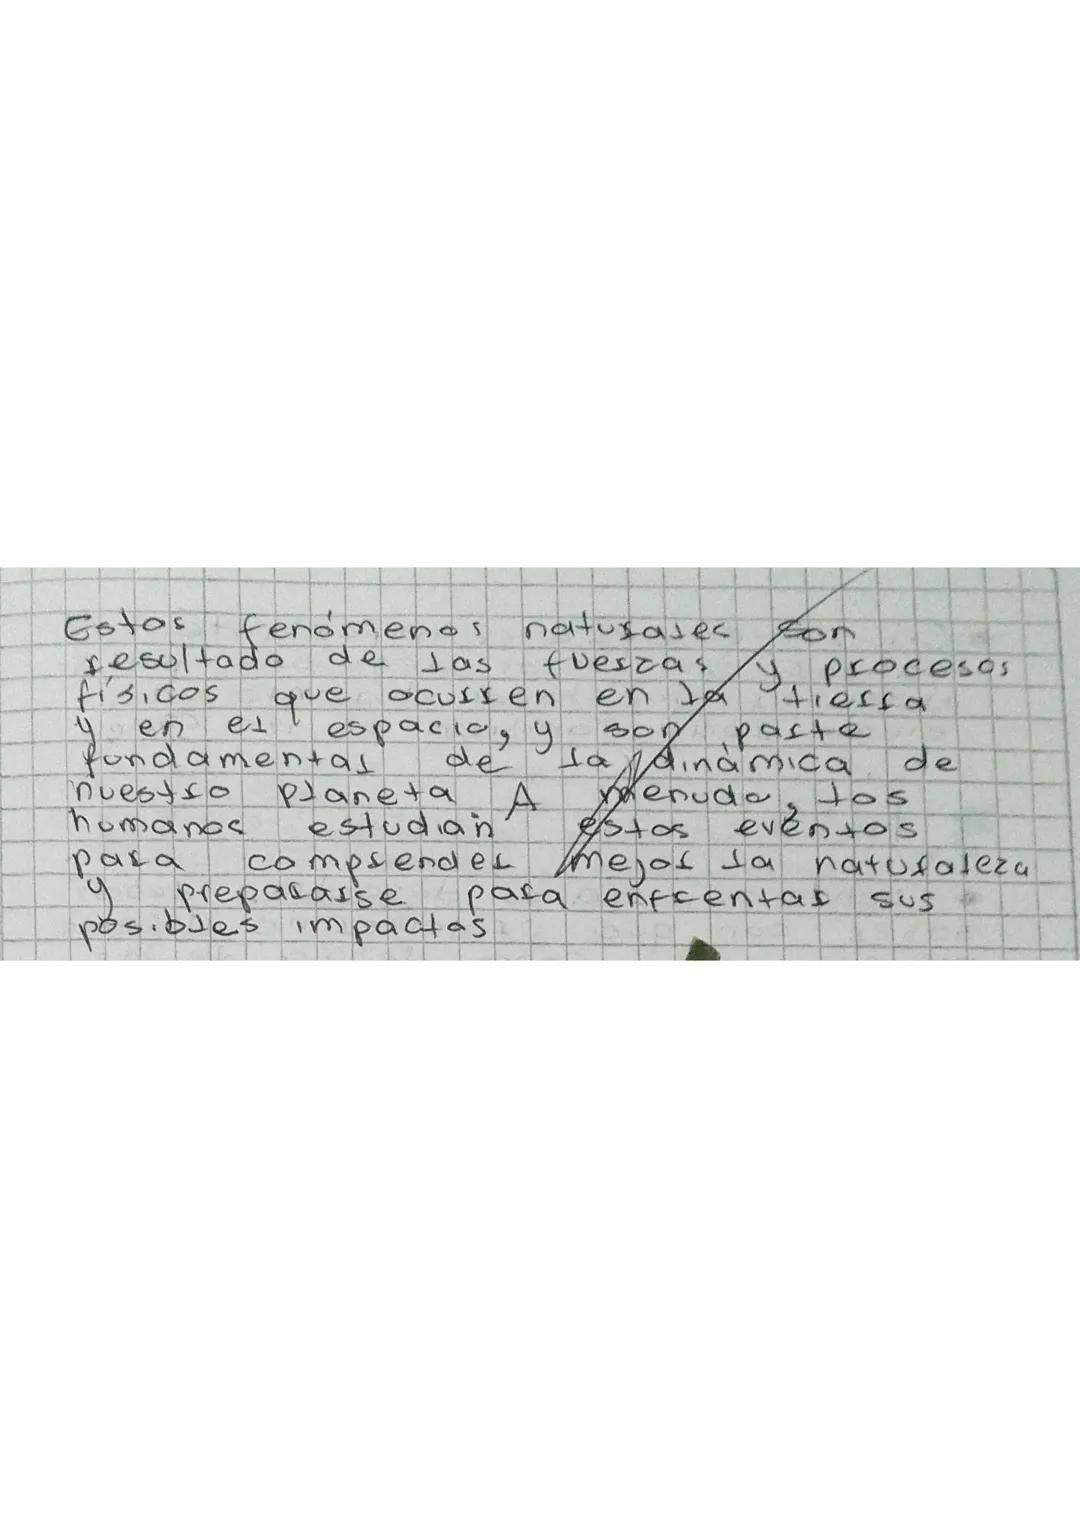 Estos fenómenos naturales son
resultado de las fuerzas y procesos
físicos que ocurren en la tierra
y en el espacio, y son parte
fundamental de la dinámica de
nuestro planeta A menudo, los
humanos estudian estos eventos
para comprender mejor la naturaleza
y prepararse para enfrentar sus
posibles impactos